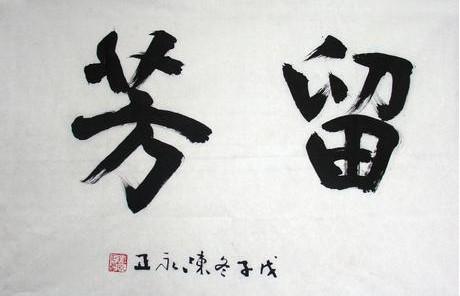 留芳
戊子冬陳永正